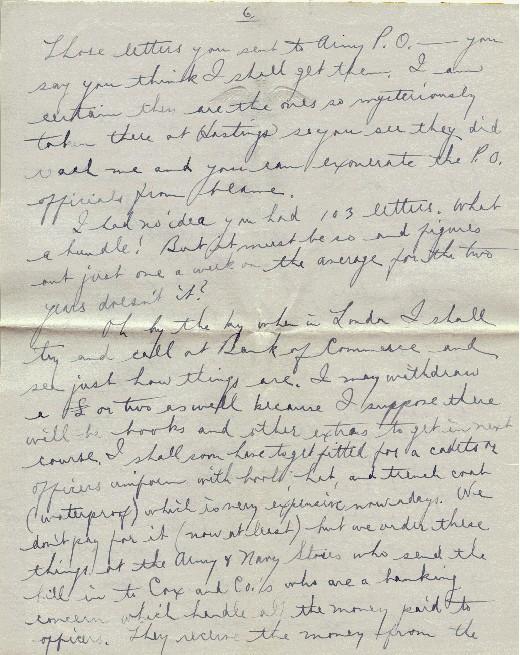 6
Those letters you sent to Army P.O. — you
say you think I shall get them. I am
certain they are the ones so mysteriously
taken there at Hastings so you see they did
reach me and you can exonerate the P.O.
officials from blame.
I had no idea you had 103 letters. What
a bundle! But it must be so and figures
out just one a week on the average for the two
years doesn't it?
Oh by the by when in London I shall
try and call at Bank of Commerce and
see just how things are. I may withdraw
a £ or two as well because I suppose there
will be books and other extras to get in next
course. I shall soon have to get fitted for a cadets or
officers uniform with boots, hat, and trench coat
(waterproof) which is very expensive nowadays. We
don't pay for it (now at least) but we order these
things at the Army & Navy Stores who send the
bill in to Cox and Co.'s who are a banking
concern which handle all the money paid to
officers. They receive the money from the